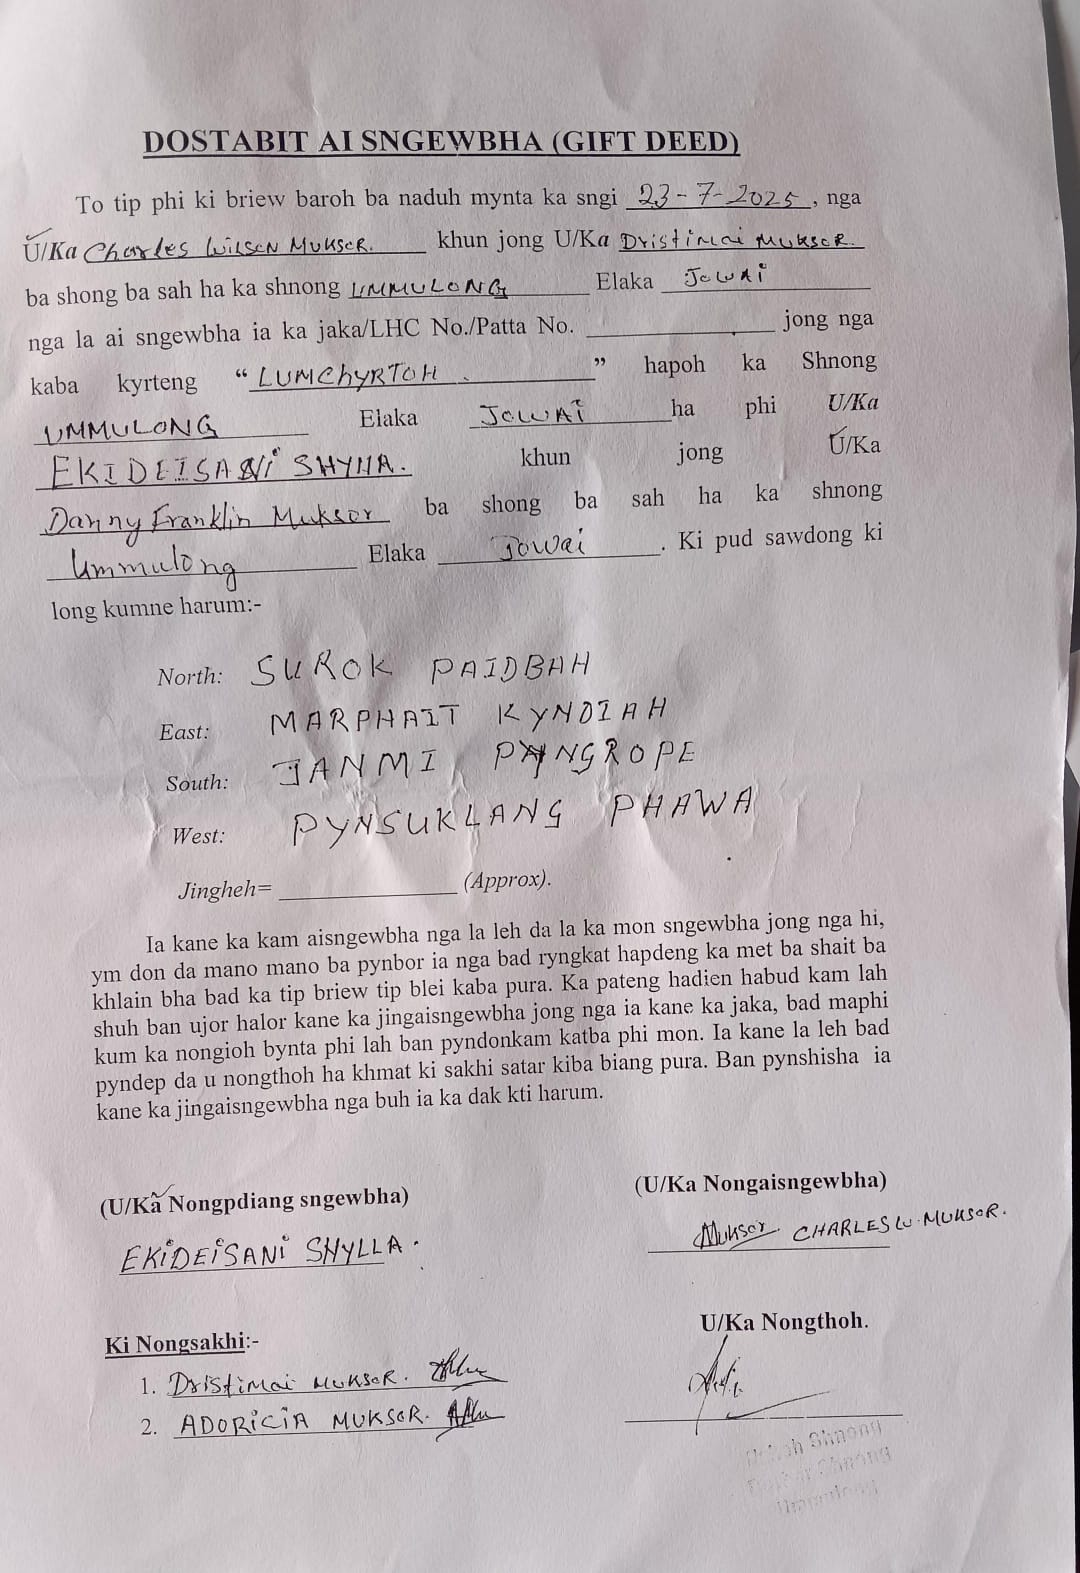 DOSTABIT AI SNGEWBHA (GIFT DEED)
To tip phi ki briew baroh ba naduh mynta ka sngi 23-7-2025, nga
U/Ka Charles Wilson Muksor. khun jong U/Ka Dristimai Muksor.
ba shong ba sah ha ka shnong UMMULONG Elaka JOWAI
nga la ai sngewbha ia ka jaka/LHC No./Patta No. ____________ jong nga
kaba kyrteng "LUMCHYRTOH." hapoh ka Shnong
UMMULONG Elaka JOWAI ha phi U/Ka
EKIDEISANI SHYLLA. khun jong U/Ka
Danny Franklin Muksor ba shong ba sah ha ka shnong
Ummulong Elaka Jowai. Ki pud sawdong ki
long kumne harum:-
North: SUROK PAIDBAH
East: MARPHAIT KYNDIAH
South: JANMI PYNGROPE
West: PYNSUKLANG PHAWA
Jingheh= ____________ (Approx).
Ia kane ka kam aisngewbha nga la leh da la ka mon sngewbha jong nga hi,
ym don da mano mano ba pynbor ia nga bad ryngkat hapdeng ka met ba shait ba
khlain bha bad ka tip briew tip blei kaba pura. Ka pateng hadien habud kam lah
shuh ban ujor halor kane ka jingaisngewbha jong nga ia kane ka jaka, bad maphi
kum ka nongioh bynta phi lah ban pyndonkam katba phi mon. Ia kane la leh bad
pyndep da u nongthoh ha khmat ki sakhi satar kiba biang pura. Ban pynshisha ia
kane ka jingaisngewbha nga buh ia ka dak kti harum.
(U/Ka Nongpdiang sngewbha) (U/Ka Nongaisngewbha)
EKIDEISANI SHYLLA. Muksor. CHARLES W. MUKSOR.
Ki Nongsakhi:- U/Ka Nongthoh.
1. Dristimai MUKSOR.
2. ADORICIA MUKSOR.
Shnong
Shnong